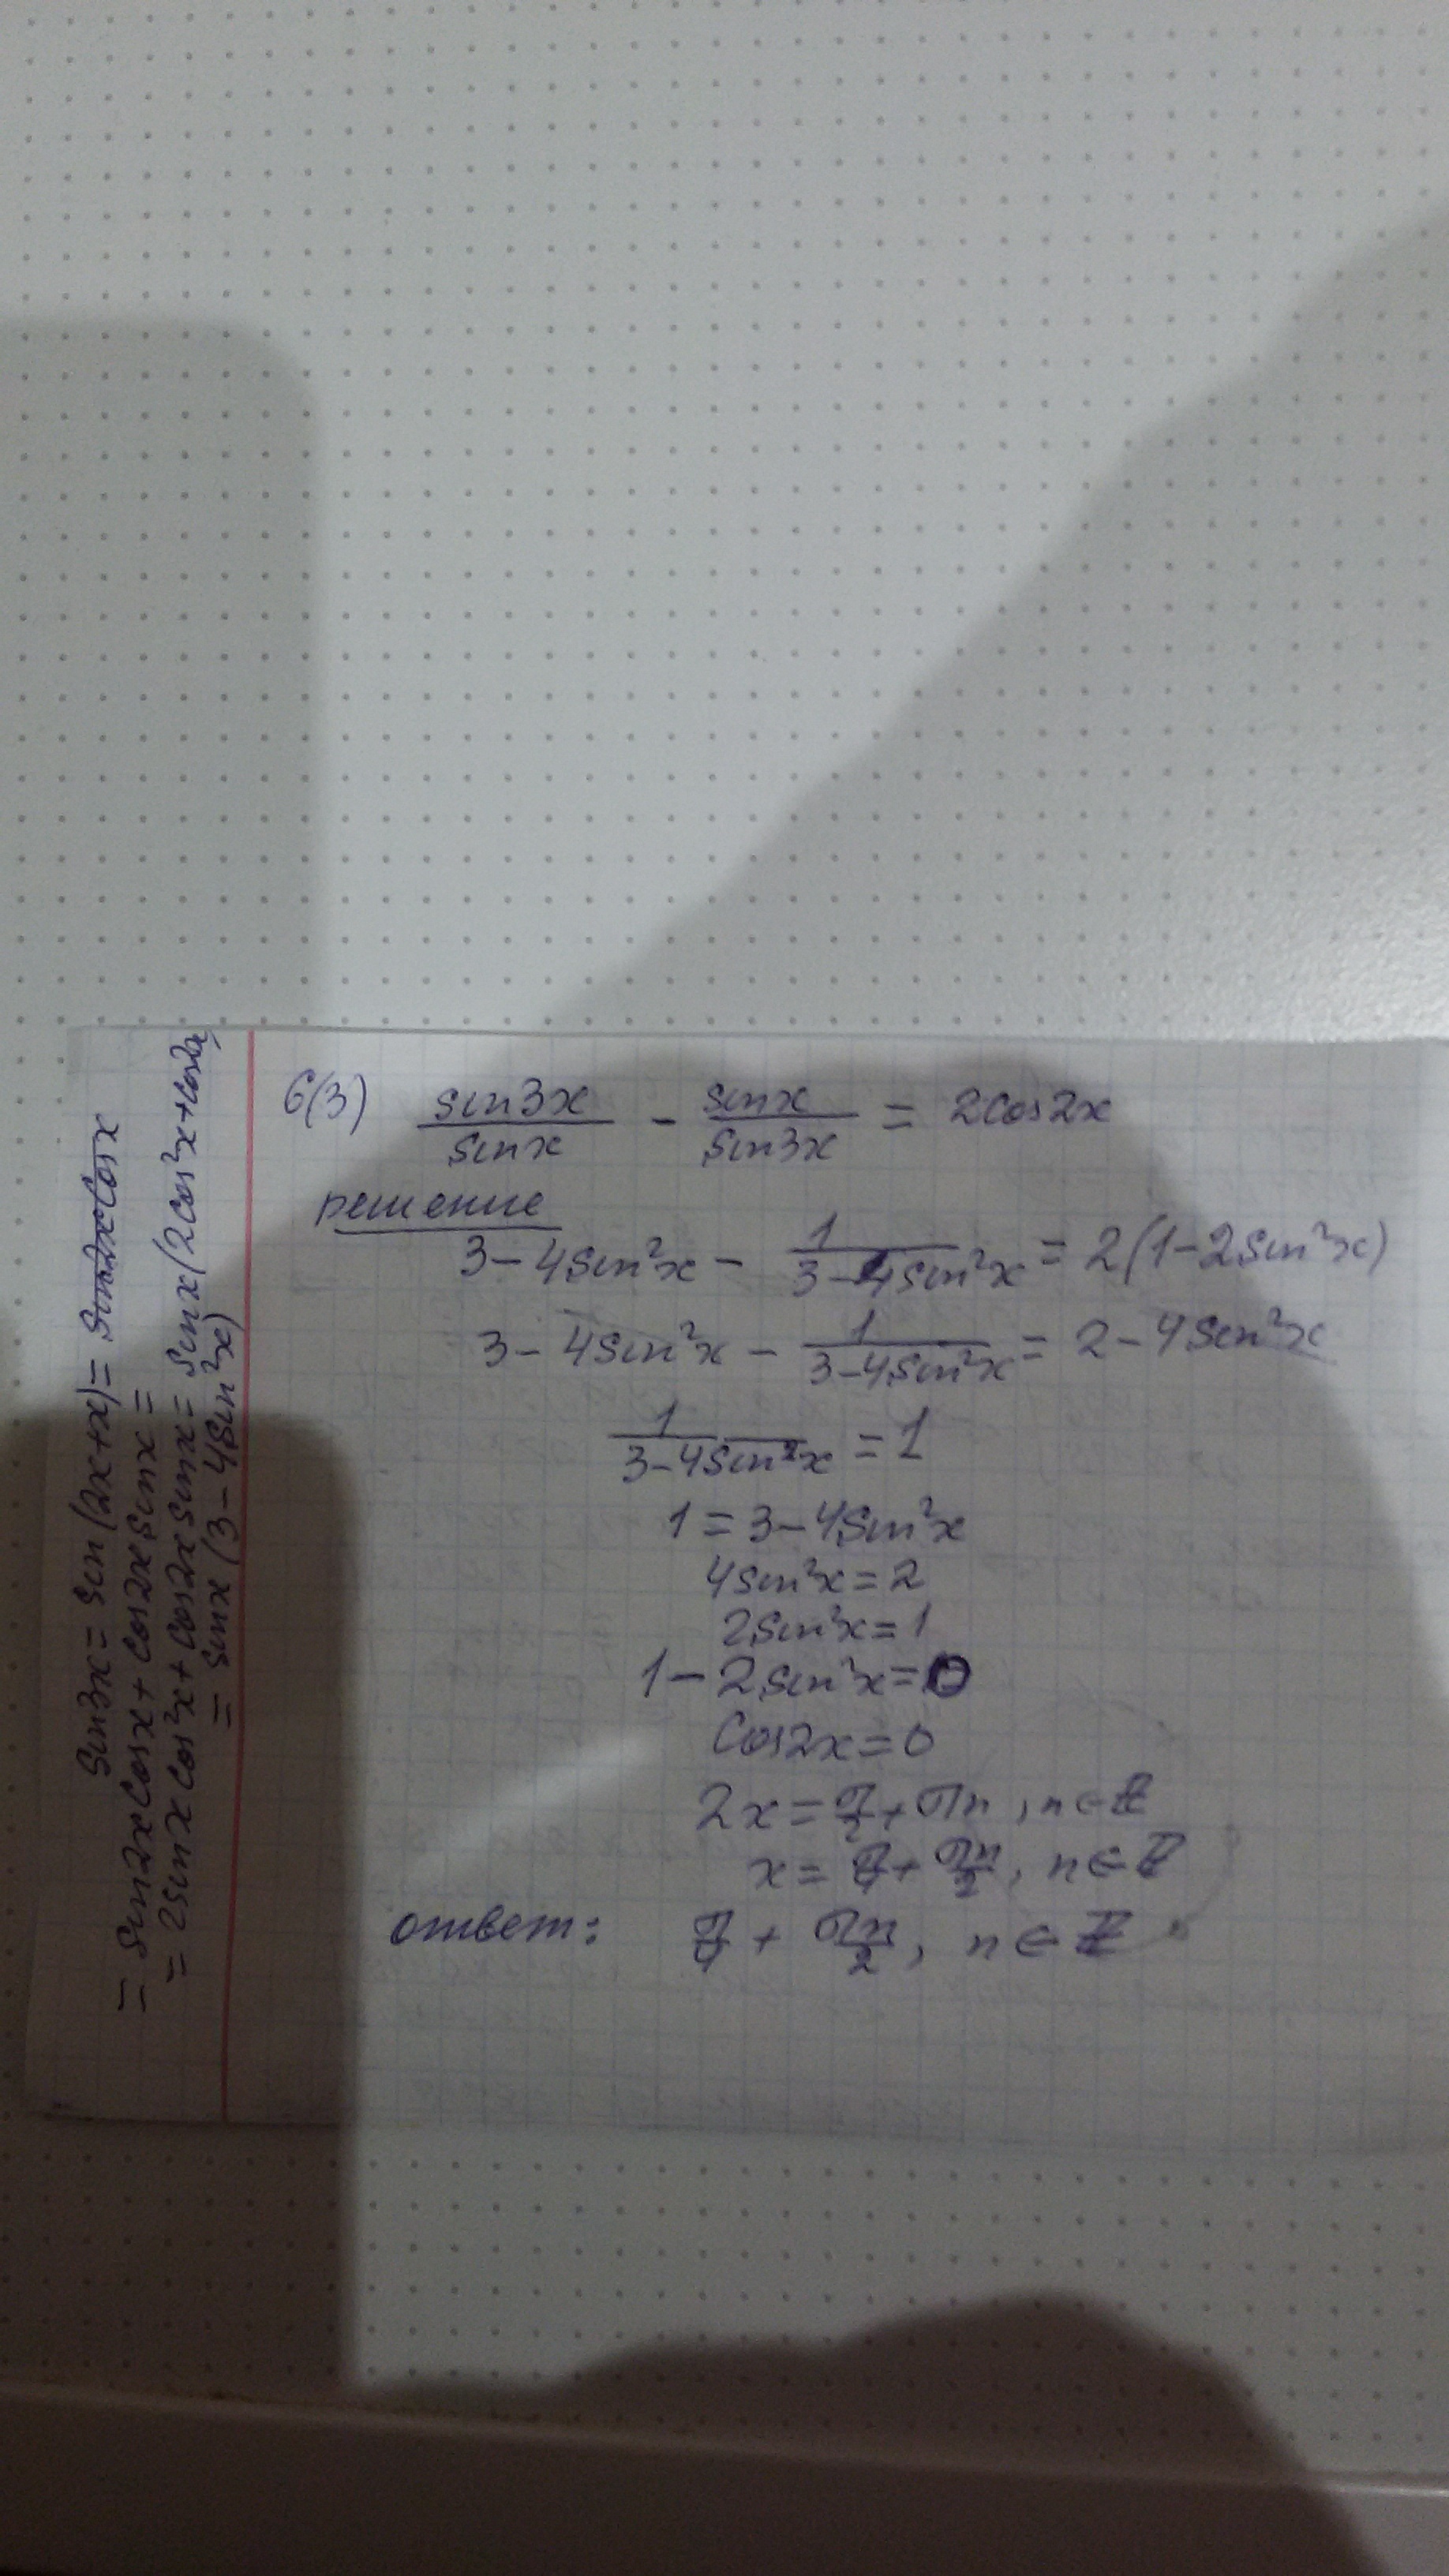 6(3) sin3x/sinx - sinx/sin3x = 2cos2x
решение
3-4sin²x - 1/(3-4sin²x) = 2(1-2sin²x)
3-4sin²x - 1/(3-4sin²x) = 2-4sin²x
1/(3-4sin²x) = 1
1=3-4sin²x
4sin²x=2
2sin²x=1
1-2sin²x=0
cos2x=0
2x=π/2+πn, n∈Z
x=π/4+πn/2, n∈Z
ответ: π/4 + πn/2, n∈Z
sin3x= sin(2x+x)= sin2xcosx
= sin2xcosx+cos2xsinx=
= 2sinxcos²x+cos2xsinx= sinx(2cos²x+cos2x)
= sinx(3-4sin²x)